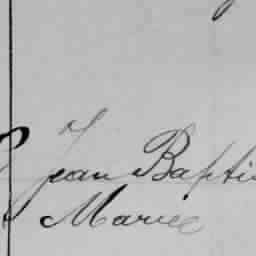 Jean Bapti
Marie